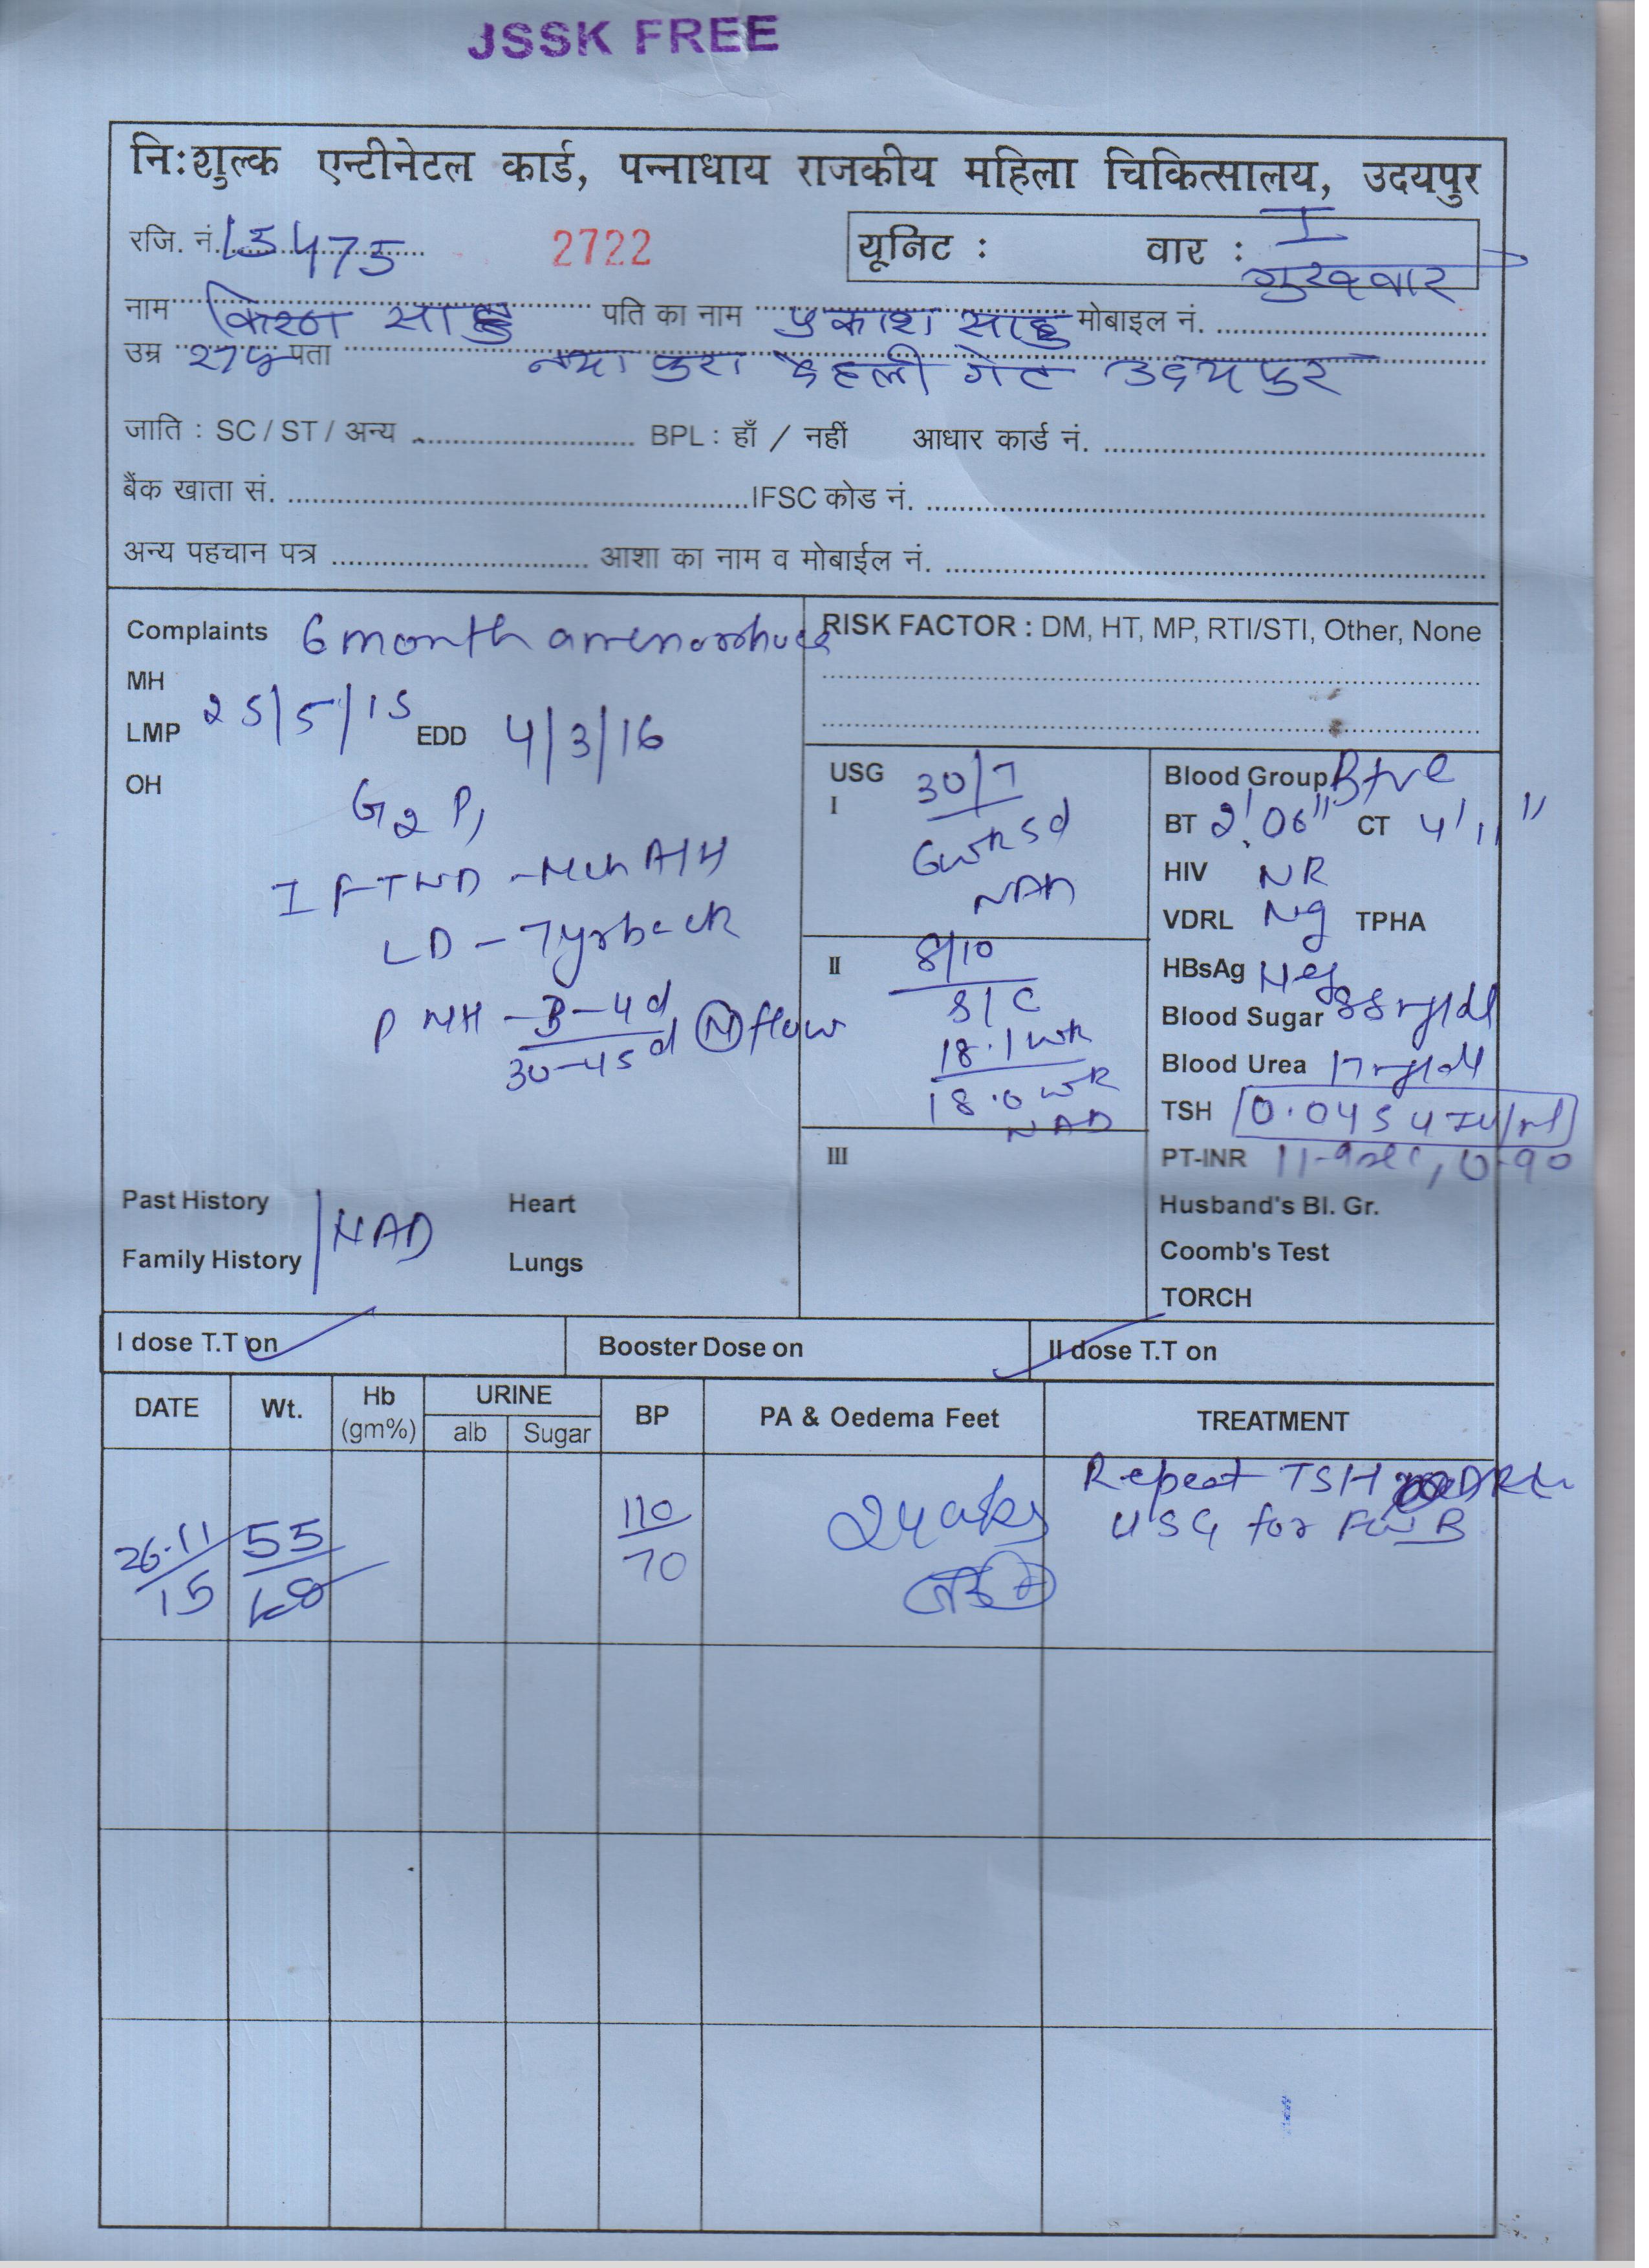 JSSK FREE
नि:शुल्क एन्टीनेटल कार्ड, पन्नाधाय राजकीय महिला चिकित्सालय, उदयपुर
रजि. नं. 13475 2722 यूनिट : वार : I
गुरुवार
नाम किरण साहु पति का नाम प्रकाश साहु मोबाइल नं.
उम्र 27y पता नया पुरा देहली गेट उदयपुर
जाति : SC / ST / अन्य BPL : हाँ / नहीं आधार कार्ड नं.
बैंक खाता सं. IFSC कोड नं.
अन्य पहचान पत्र आशा का नाम व मोबाईल नं.
Complaints 6 month amenorrhoea
MH
LMP 25/5/15 EDD 4/3/16
OH
G2P1
I FTND - Mch A/H
LD - 7 yr back
P MH - 3-4 d / 30-45 d (N) flow
Past History
Family History NAD
Heart
Lungs
RISK FACTOR : DM, HT, MP, RTI/STI, Other, None
USG
I 30/7
6wk5d
NAD
II 8/10
S/C
18.1 wk
18.0 wk
NAD
III
Blood Group B+ve
BT 2'06" CT 4'11"
HIV NR
VDRL Ng TPHA
HBsAg Neg
Blood Sugar 88 mg/dl
Blood Urea 17 mg/dl
TSH 0.045 uIU/ml
PT-INR 11.9 sec, 0.90
Husband's Bl. Gr.
Coomb's Test
TORCH
I dose T.T on Booster Dose on II dose T.T on
DATE Wt. Hb (gm%) URINE alb Sugar BP PA & Oedema Feet TREATMENT
26.11/15 55 kg 110/70 24 wks Repeat TSH
USG for FWB